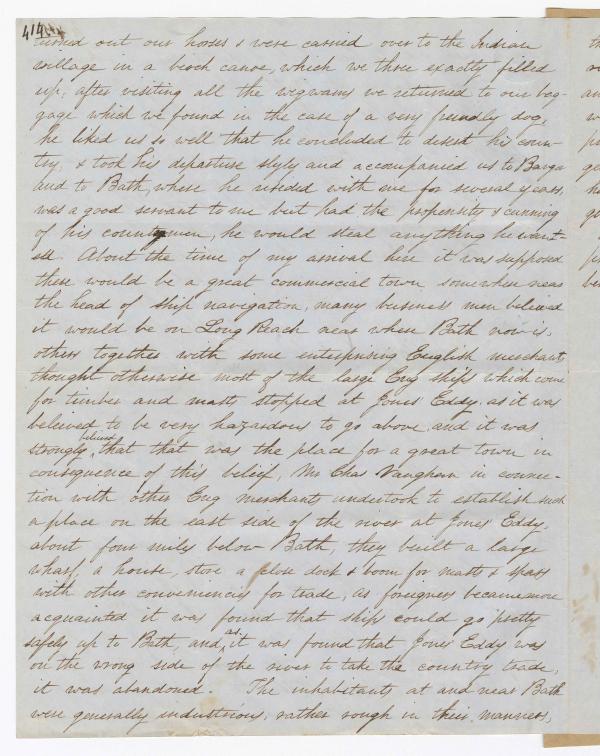 414
turned out our horses & were carried over to the Indian
village in a berch canoe, which we three exactly filled
up; after visiting all the wigwams we returned to our bag-
gage which we found in the care of a very friendly dog,
he liked us so well that he concluded to desert his coun-
try, & took his departure slyly and accompanied us to Bangor
and to Bath, where he resided with me for several years,
was a good servant to me but had the propensity & cunning
of his countrymen, he would steal anything he want-
ed. About the time of my arrival here it was supposed
there would be a great commercial town somewhere near
the head of ship navigation, many business men believed
it would be on Long Reach near where Bath now is,
others together with some enterprising English merchants
thought otherwise most of the large Eng ships which come
for timber and masts stopped at Jones' Eddy, as it was
believed to be very hazardous to go above and it was
strongly believed, that that was the place for a great town in
consequence of this belief, Mr Chas Vaughan in connec-
tion with other Eng merchants undertook to establish such
a place on the east side of the river at Jones' Eddy,
about four miles below Bath, they built a large
wharf, a house, store a close dock & boom for masts & spars
with other conveniences for trade, as foreigners became more
acquainted it was found that ships could go pretty
safely up to Bath, and, as it was found that Jones' Eddy was
on the wrong side of the river to take the country trade,
it was abandoned. The inhabitants at and near Bath
were generally industrious, rather rough in their manners,